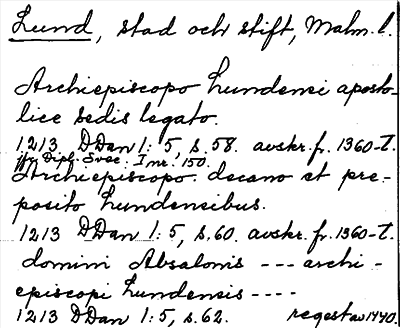 Lund, stad och stift, Malm. l.
Archiepiscopo Lundensi aposto-
lice sedis legato.
1213 DDan 1:5, s. 58. avskr. fr. 1360-t.
jfr Dipl. Svec. I nr 150.
Archiepiscopo. decano et pre-
posito Lundensibus.
1213 DDan 1:5, s. 60. avskr. fr. 1360-t.
domini Absalonis --- archi-
episcopi Lundensis ----
1213 DDan 1:5, s. 62. regest av 1770.